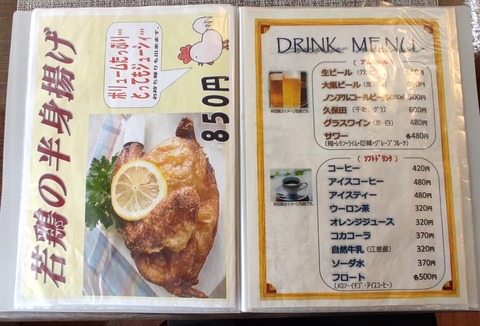 若鶏の半身揚げ
ボリュームたっぷり…
とってもジューシー！
お持ち帰りも出来ます。
850円
DRINK MENU
生ビール
大阪ビール
ノンアルコールビール 500円
久保田 600円
グラスワイン（赤・白） 480円
サワー 各480円
ソフトドリンク
コーヒー 420円
アイスコーヒー 480円
アイスティー 480円
ウーロン茶 320円
オレンジジュース 320円
コカコーラ 370円
自然牛乳（江差産） 320円
ソーダ水 370円
フロート 各500円
（メロン・イチゴ・アイスコーヒー）